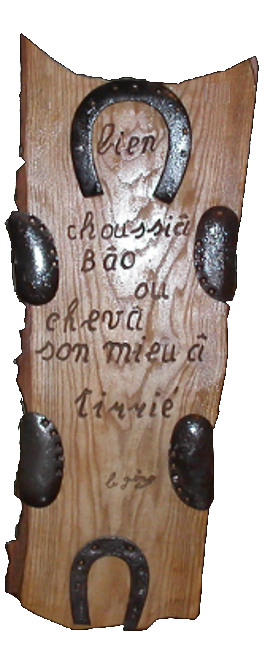 bien
choussiâ
Bâo
ou
chevâ
son mieu â
tirrié